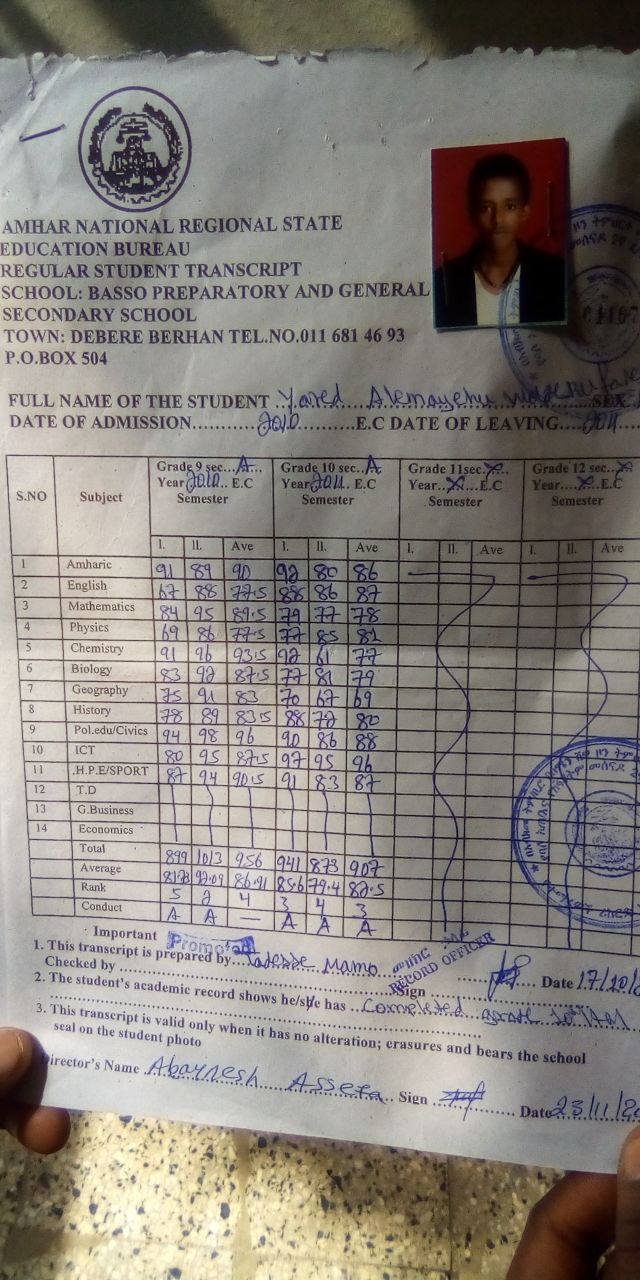 AMHAR NATIONAL REGIONAL STATE
EDUCATION BUREAU
REGULAR STUDENT TRANSCRIPT
SCHOOL: BASSO PREPARATORY AND GENERAL
SECONDARY SCHOOL
TOWN: DEBERE BERHAN TEL.NO.011 681 46 93
P.O.BOX 504
FULL NAME OF THE STUDENT Yared Alemayehu SEX
DATE OF ADMISSION 2010 E.C DATE OF LEAVING 2011
S.NO Subject Grade 9 sec...A... Year 2010.. E.C Semester Grade 10 sec...A Year 2011.. E.C Semester Grade 11sec...X... Year..X..E.C Semester Grade 12 sec...X Year....X..E.C Semester
I. II. Ave I. II. Ave I. II. Ave I. II. Ave
1 Amharic 91 89 90 92 80 86
2 English 67 88 77.5 88 86 87
3 Mathematics 84 95 89.5 79 77 78
4 Physics 69 86 77.5 77 85 81
5 Chemistry 91 96 93.5 92 61 77
6 Biology 83 92 87.5 77 81 79
7 Geography 75 91 83 70 67 69
8 History 78 89 83.5 88 72 80
9 Pol.edu/Civics 94 98 96 90 86 88
10 ICT 80 95 87.5 97 95 96
11 .H.P.E/SPORT 87 94 90.5 91 83 87
12 T.D
13 G.Business
14 Economics
Total 899 1013 956 941 873 907
Average 81.73 92.09 86.91 85.6 79.4 82.5
Rank 5 2 4 3 4 3
Conduct A A — A A A
Important Promoted
1. This transcript is prepared by Tadesse Mamo Sign Date 17/10/
RECORD OFFICER
Checked by
2. The student's academic record shows he/she has Completed 10th
3. This transcript is valid only when it has no alteration; erasures and bears the school
seal on the student photo
Director's Name Abaynesh Assefa Sign Date 23/11/20